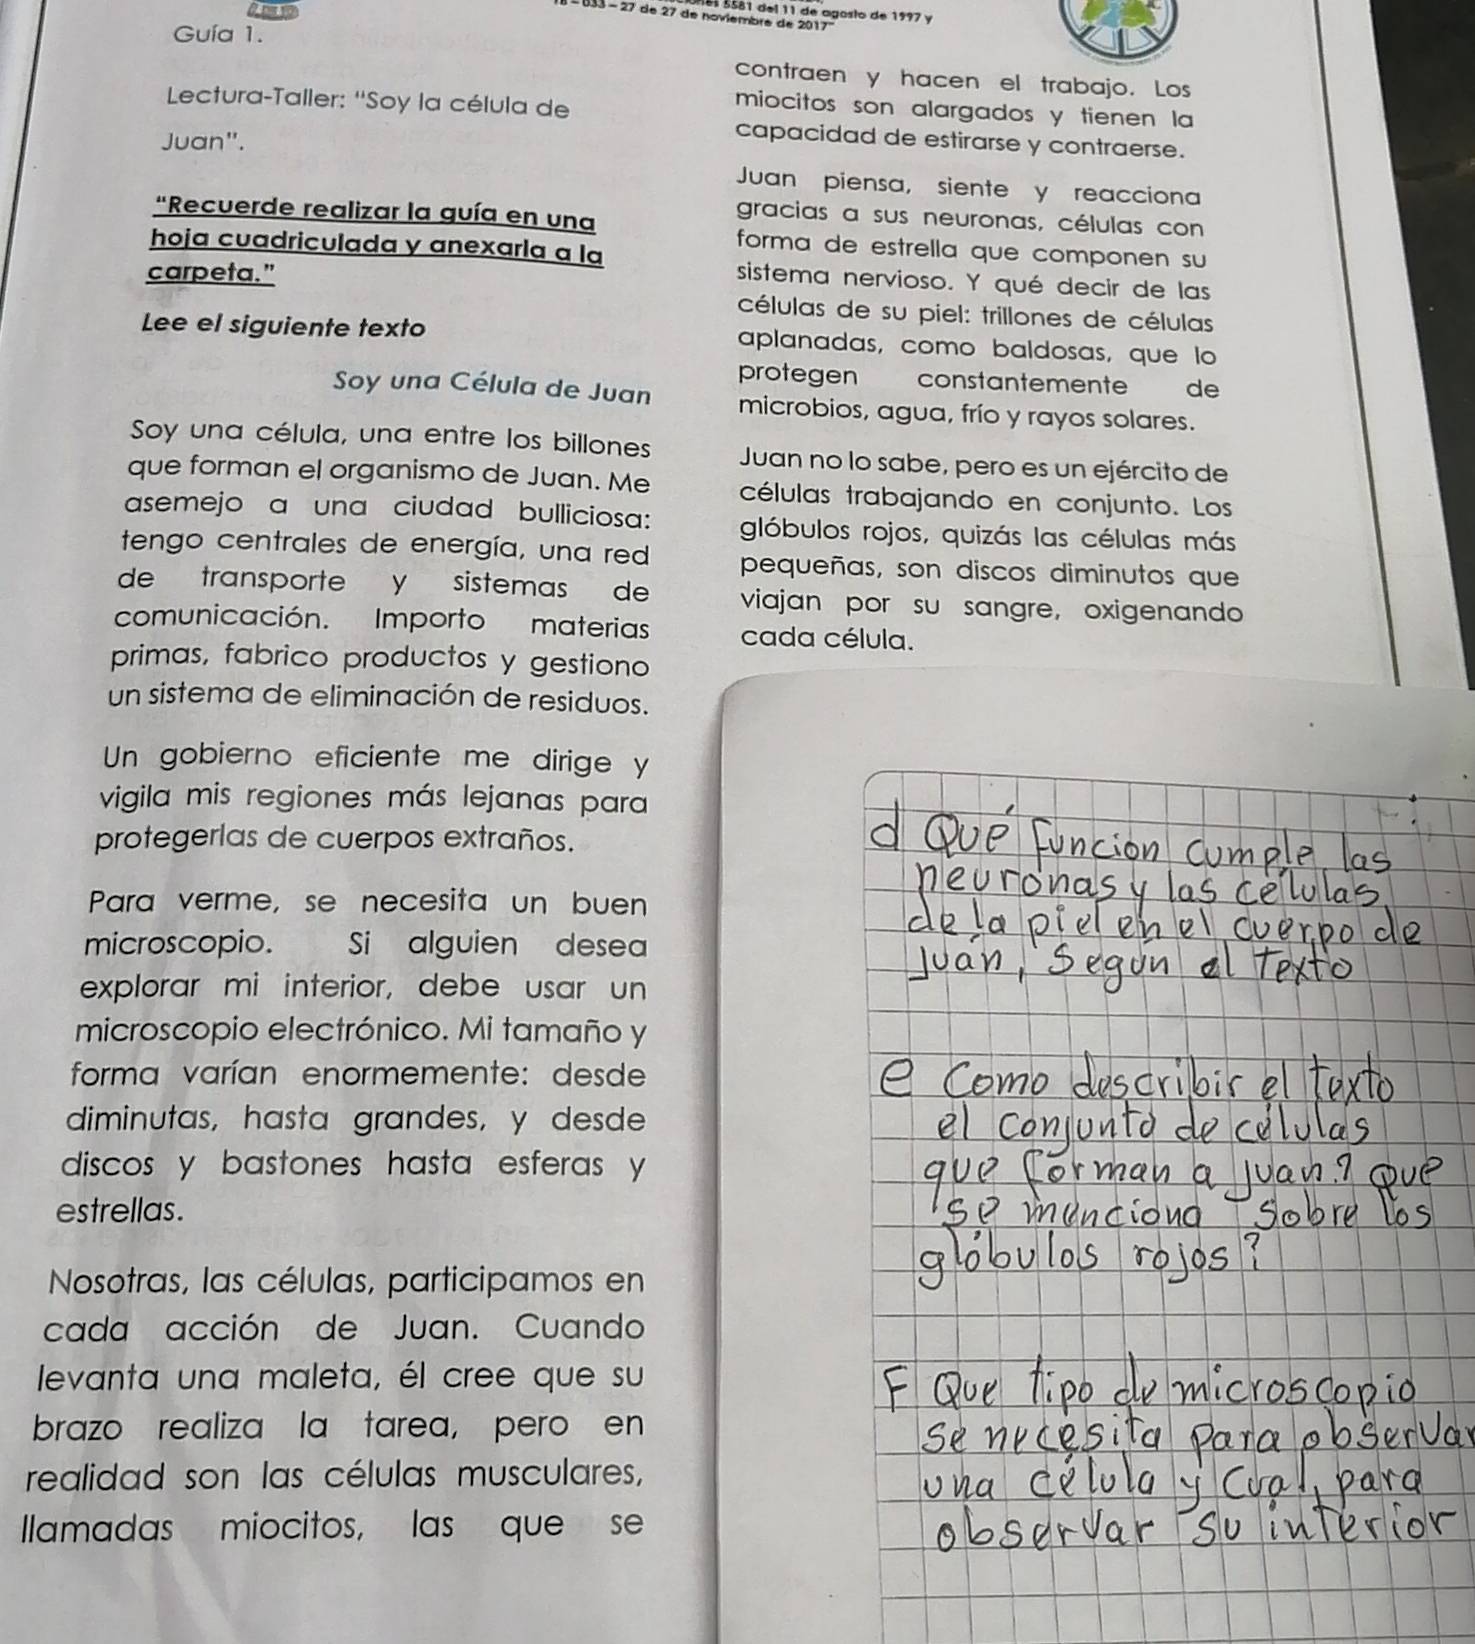 18 – 033 – 27 de 27 de noviembre de 2017"
5581 del 11 de agosto de 1997 y
Guía 1.
Lectura-Taller: "Soy la célula de
Juan".
"Recuerde realizar la guía en una
hoja cuadriculada y anexarla a la
carpeta."
Lee el siguiente texto
Soy una Célula de Juan
Soy una célula, una entre los billones
que forman el organismo de Juan. Me
asemejo a una ciudad bulliciosa:
tengo centrales de energía, una red
de transporte y sistemas de
comunicación. Importo materias
primas, fabrico productos y gestiono
un sistema de eliminación de residuos.
Un gobierno eficiente me dirige y
vigila mis regiones más lejanas para
protegerlas de cuerpos extraños.
Para verme, se necesita un buen
microscopio. Si alguien desea
explorar mi interior, debe usar un
microscopio electrónico. Mi tamaño y
forma varían enormemente: desde
diminutas, hasta grandes, y desde
discos y bastones hasta esferas y
estrellas.
Nosotras, las células, participamos en
cada acción de Juan. Cuando
levanta una maleta, él cree que su
brazo realiza la tarea, pero en
realidad son las células musculares,
llamadas miocitos, las que se
contraen y hacen el trabajo. Los
miocitos son alargados y tienen la
capacidad de estirarse y contraerse.
Juan piensa, siente y reacciona
gracias a sus neuronas, células con
forma de estrella que componen su
sistema nervioso. Y qué decir de las
células de su piel: trillones de células
aplanadas, como baldosas, que lo
protegen constantemente de
microbios, agua, frío y rayos solares.
Juan no lo sabe, pero es un ejército de
células trabajando en conjunto. Los
glóbulos rojos, quizás las células más
pequeñas, son discos diminutos que
viajan por su sangre, oxigenando
cada célula.
d Qué funcion cumple las
neuronas y las células
de la piel en el cuerpo de
Juan, Segun el Texto
e Como describir el texto
el conjunto de células
que forman a Juan? Que
se menciona sobre los
glóbulos rojos?
F Que tipo de microscopio
se necesita para observar
una célula y cual, para
observar su interior